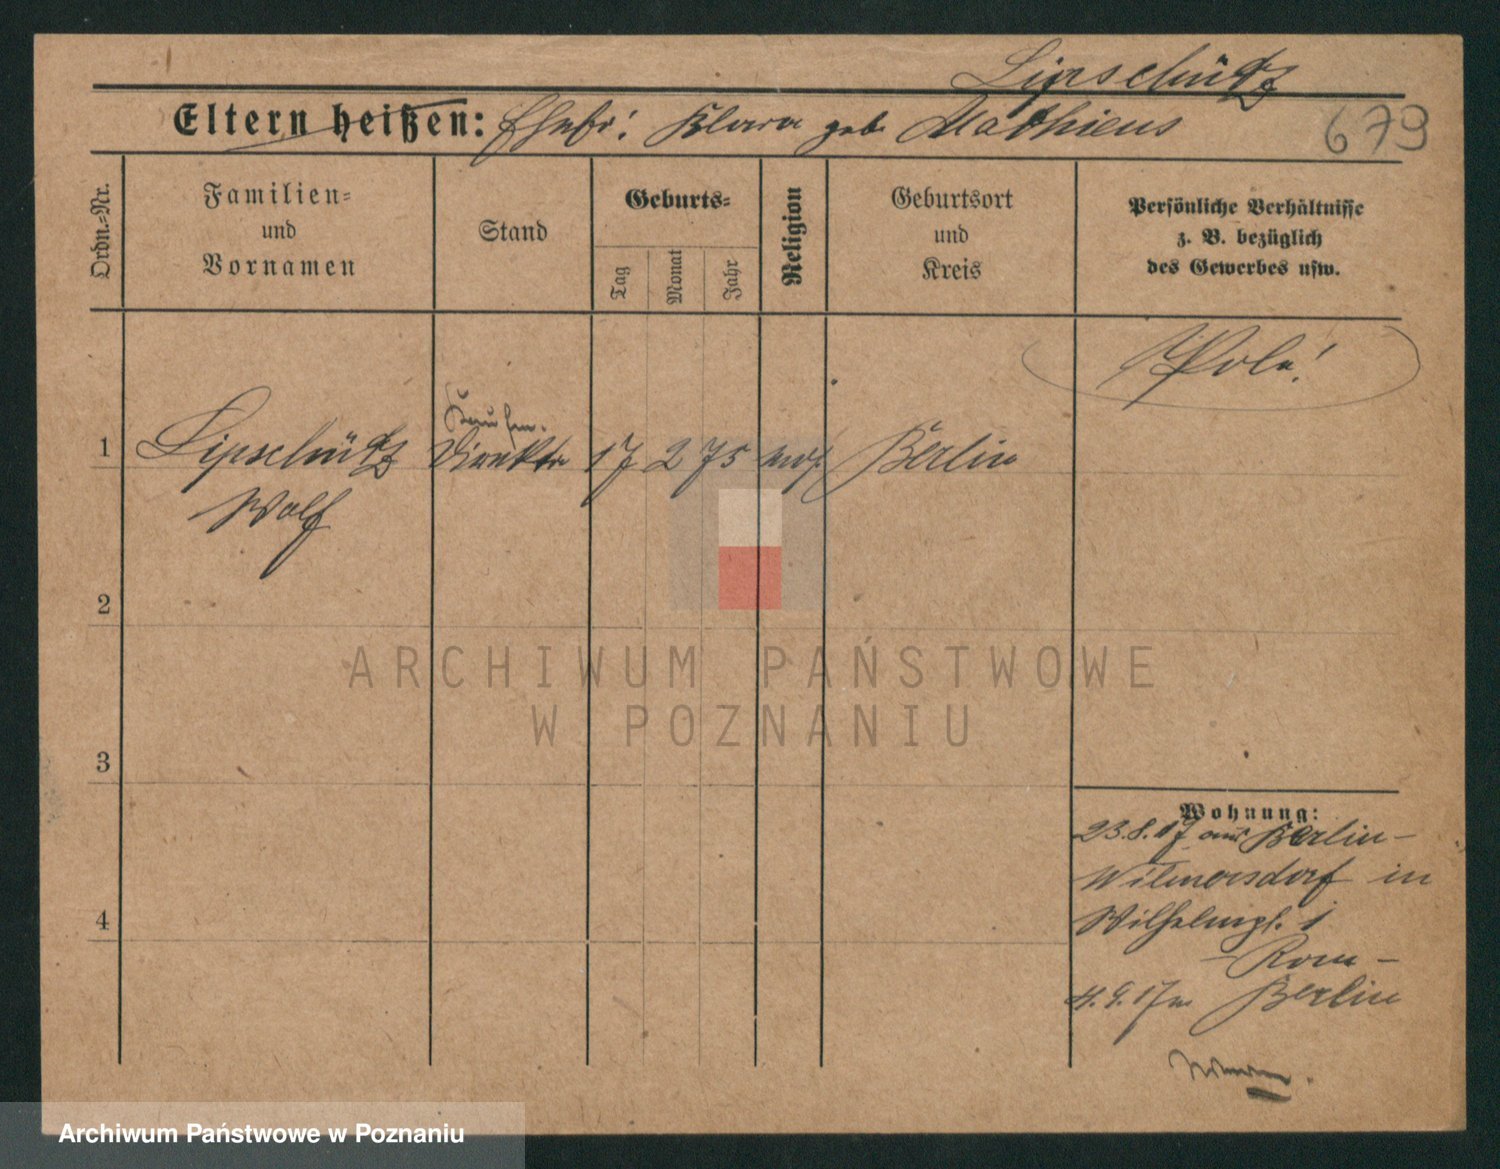 Lipschütz
Eltern heißen: Ehefr: Klara geb. Mathieus
679
Ordn.=Nr.
Familien=
und
Vornamen
Stand
Geburts=
Tag
Monat
Jahr
Religion
Geburtsort
und
Kreis
Persönliche Verhältnisse
z. B. bezüglich
des Gewerbes usw.
Pole!
Kaufm.
1 Lipschütz Direktor 17 2 75 Berlin
Wolf
2
3
4
Wohnung:
23.8.17 aus Berlin-
Wilmersdorf in
Wilhelmspl. 1
- Rom -
4.9.17 n. Berlin
ARCHIWUM PAŃSTWOWE
W POZNANIU
Archiwum Państwowe w Poznaniu